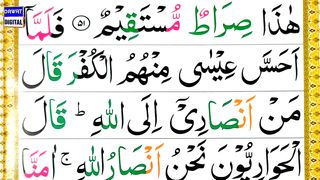 DAWAT
DIGITAL
هٰذَا صِرَاطٌ مُّسۡتَقِيۡمٌ ﴿۵۱﴾ فَلَمَّاۤ
اَحَسَّ عِيۡسٰى مِنۡهُمُ الۡكُفۡرَ قَالَ
مَنۡ اَنۡصَارِىۡۤ اِلَى اللّٰهِ‌ؕ قَالَ
الۡحَـوَارِيُّوۡنَ نَحۡنُ اَنۡصَارُ اللّٰهِ‌ۚ اٰمَنَّا